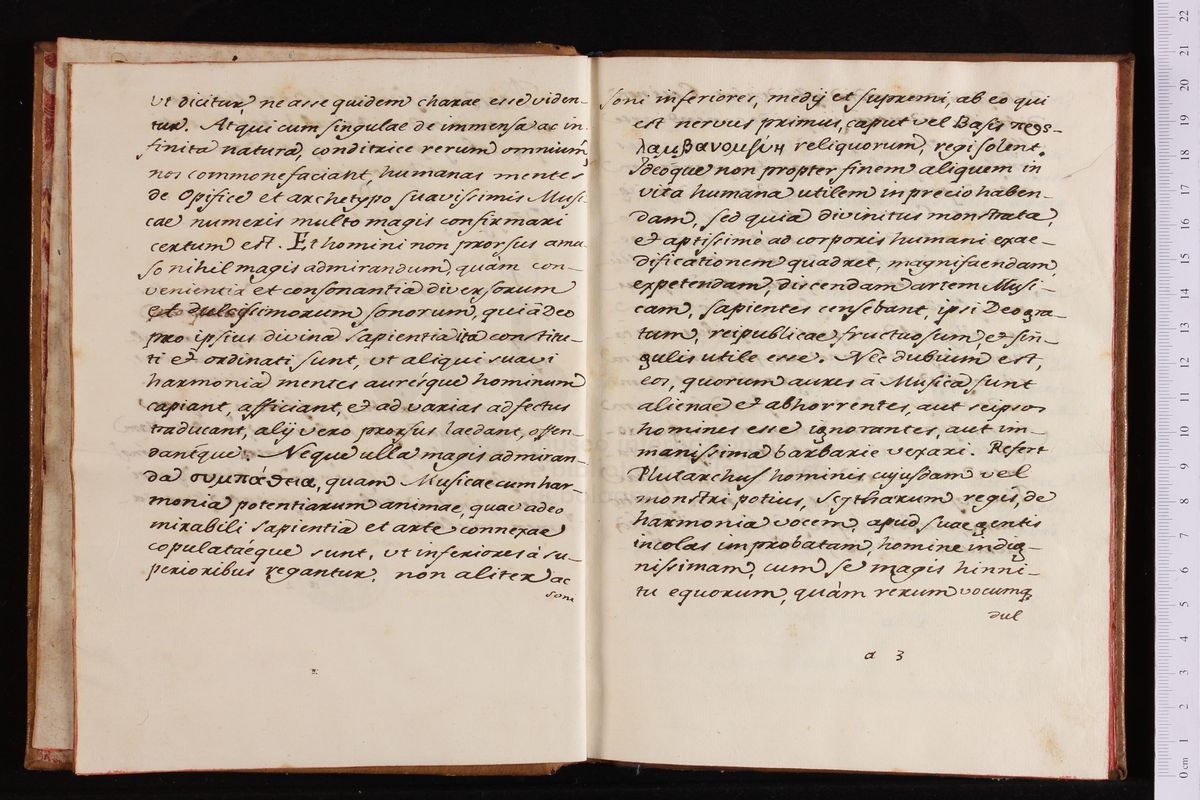 vt dicitur, ne asse quidem charae esse viden-
tur. Atqui cum singulae de immensa ac in-
finita natura, conditrice rerum omnium,
nos commonefaciant, humanas mentes
de Opifice et archetypo suavissimis Musi-
cae numeris multo magis confirmari
certum est. Et homini non prorsus amu-
so nihil magis admirandum, quàm con-
venientia et consonantia diversorum
et dulcissimorum sonorum, qui à Deo
pro ipsius divina sapientia ita constitu-
ti et ordinati sunt, vt aliqui suavi
harmonia mentes auresque hominum
capiant, afficiant, et ad varias adfectus
traducant, alij vero prorsus laedant, offen-
dantque. Neque ulla magis admiran-
da συμπάθεια, quam Musicae cum har-
monia potentiarum animae, quae adeo
mirabili sapientia et arte connexae
copulataeque sunt, vt inferiores à su-
perioribus regantur, non aliter ac
soni
soni inferiores, medij et supremi, ab eo qui
est nervus primus, caput vel Basis προς-
λαμβανομένη reliquorum, regi solent.
Ideoque non propter finem aliquem in
vita humana utilem in precio haben-
dam, sed quia divinitus monstrata,
et aptissimè ad corporis humani exae-
dificationem quadret, magnifaciendam,
expetendam, discendam artem Musi-
cam, sapientes censebant, ipsi Deo gra-
tam, reipublicae fructuosum, et sin-
gulis utile esse. Nec dubium est,
eos, quorum aures à Musica sunt
alienae et abhorrentes, aut seipsos
homines esse ignorantes, aut im-
manissima barbarie vexari. Refert
Plutarchus hominis cujusdam vel
monstri potius, Scytharum regis, de
harmonia vocem, apud suae gentis
incolas improbatam, homine indig-
nissimam, cum se magis hinni-
tu equorum, quàm rerum vocumq
dul
a 3
0 cm 1 2 3 4 5 6 7 8 9 10 11 12 13 14 15 16 17 18 19 20 21 22